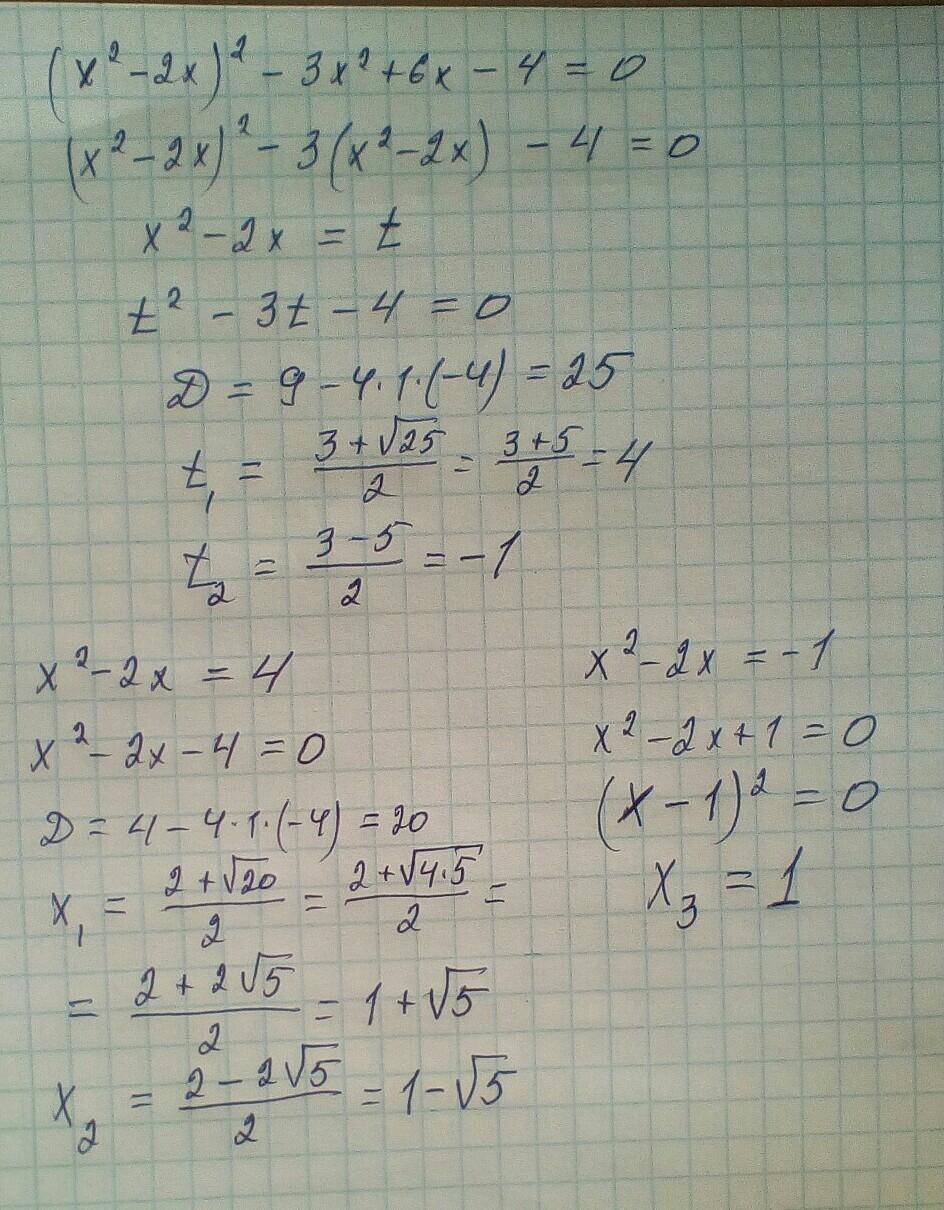 (x² - 2x)² - 3x² + 6x - 4 = 0
(x² - 2x)² - 3(x² - 2x) - 4 = 0
x² - 2x = t
t² - 3t - 4 = 0
D = 9 - 4·1·(-4) = 25
t₁ = (3 + √25)/2 = (3 + 5)/2 = 4
t₂ = (3 - 5)/2 = -1
x² - 2x = 4
x² - 2x - 4 = 0
D = 4 - 4·1·(-4) = 20
x₁ = (2 + √20)/2 = (2 + √(4·5))/2 =
= (2 + 2√5)/2 = 1 + √5
x₂ = (2 - 2√5)/2 = 1 - √5
x² - 2x = -1
x² - 2x + 1 = 0
(x - 1)² = 0
x₃ = 1